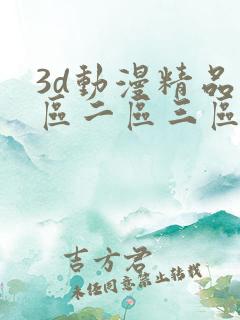 3d動漫精品
區二區三區
吉方君
未經同意禁止轉載